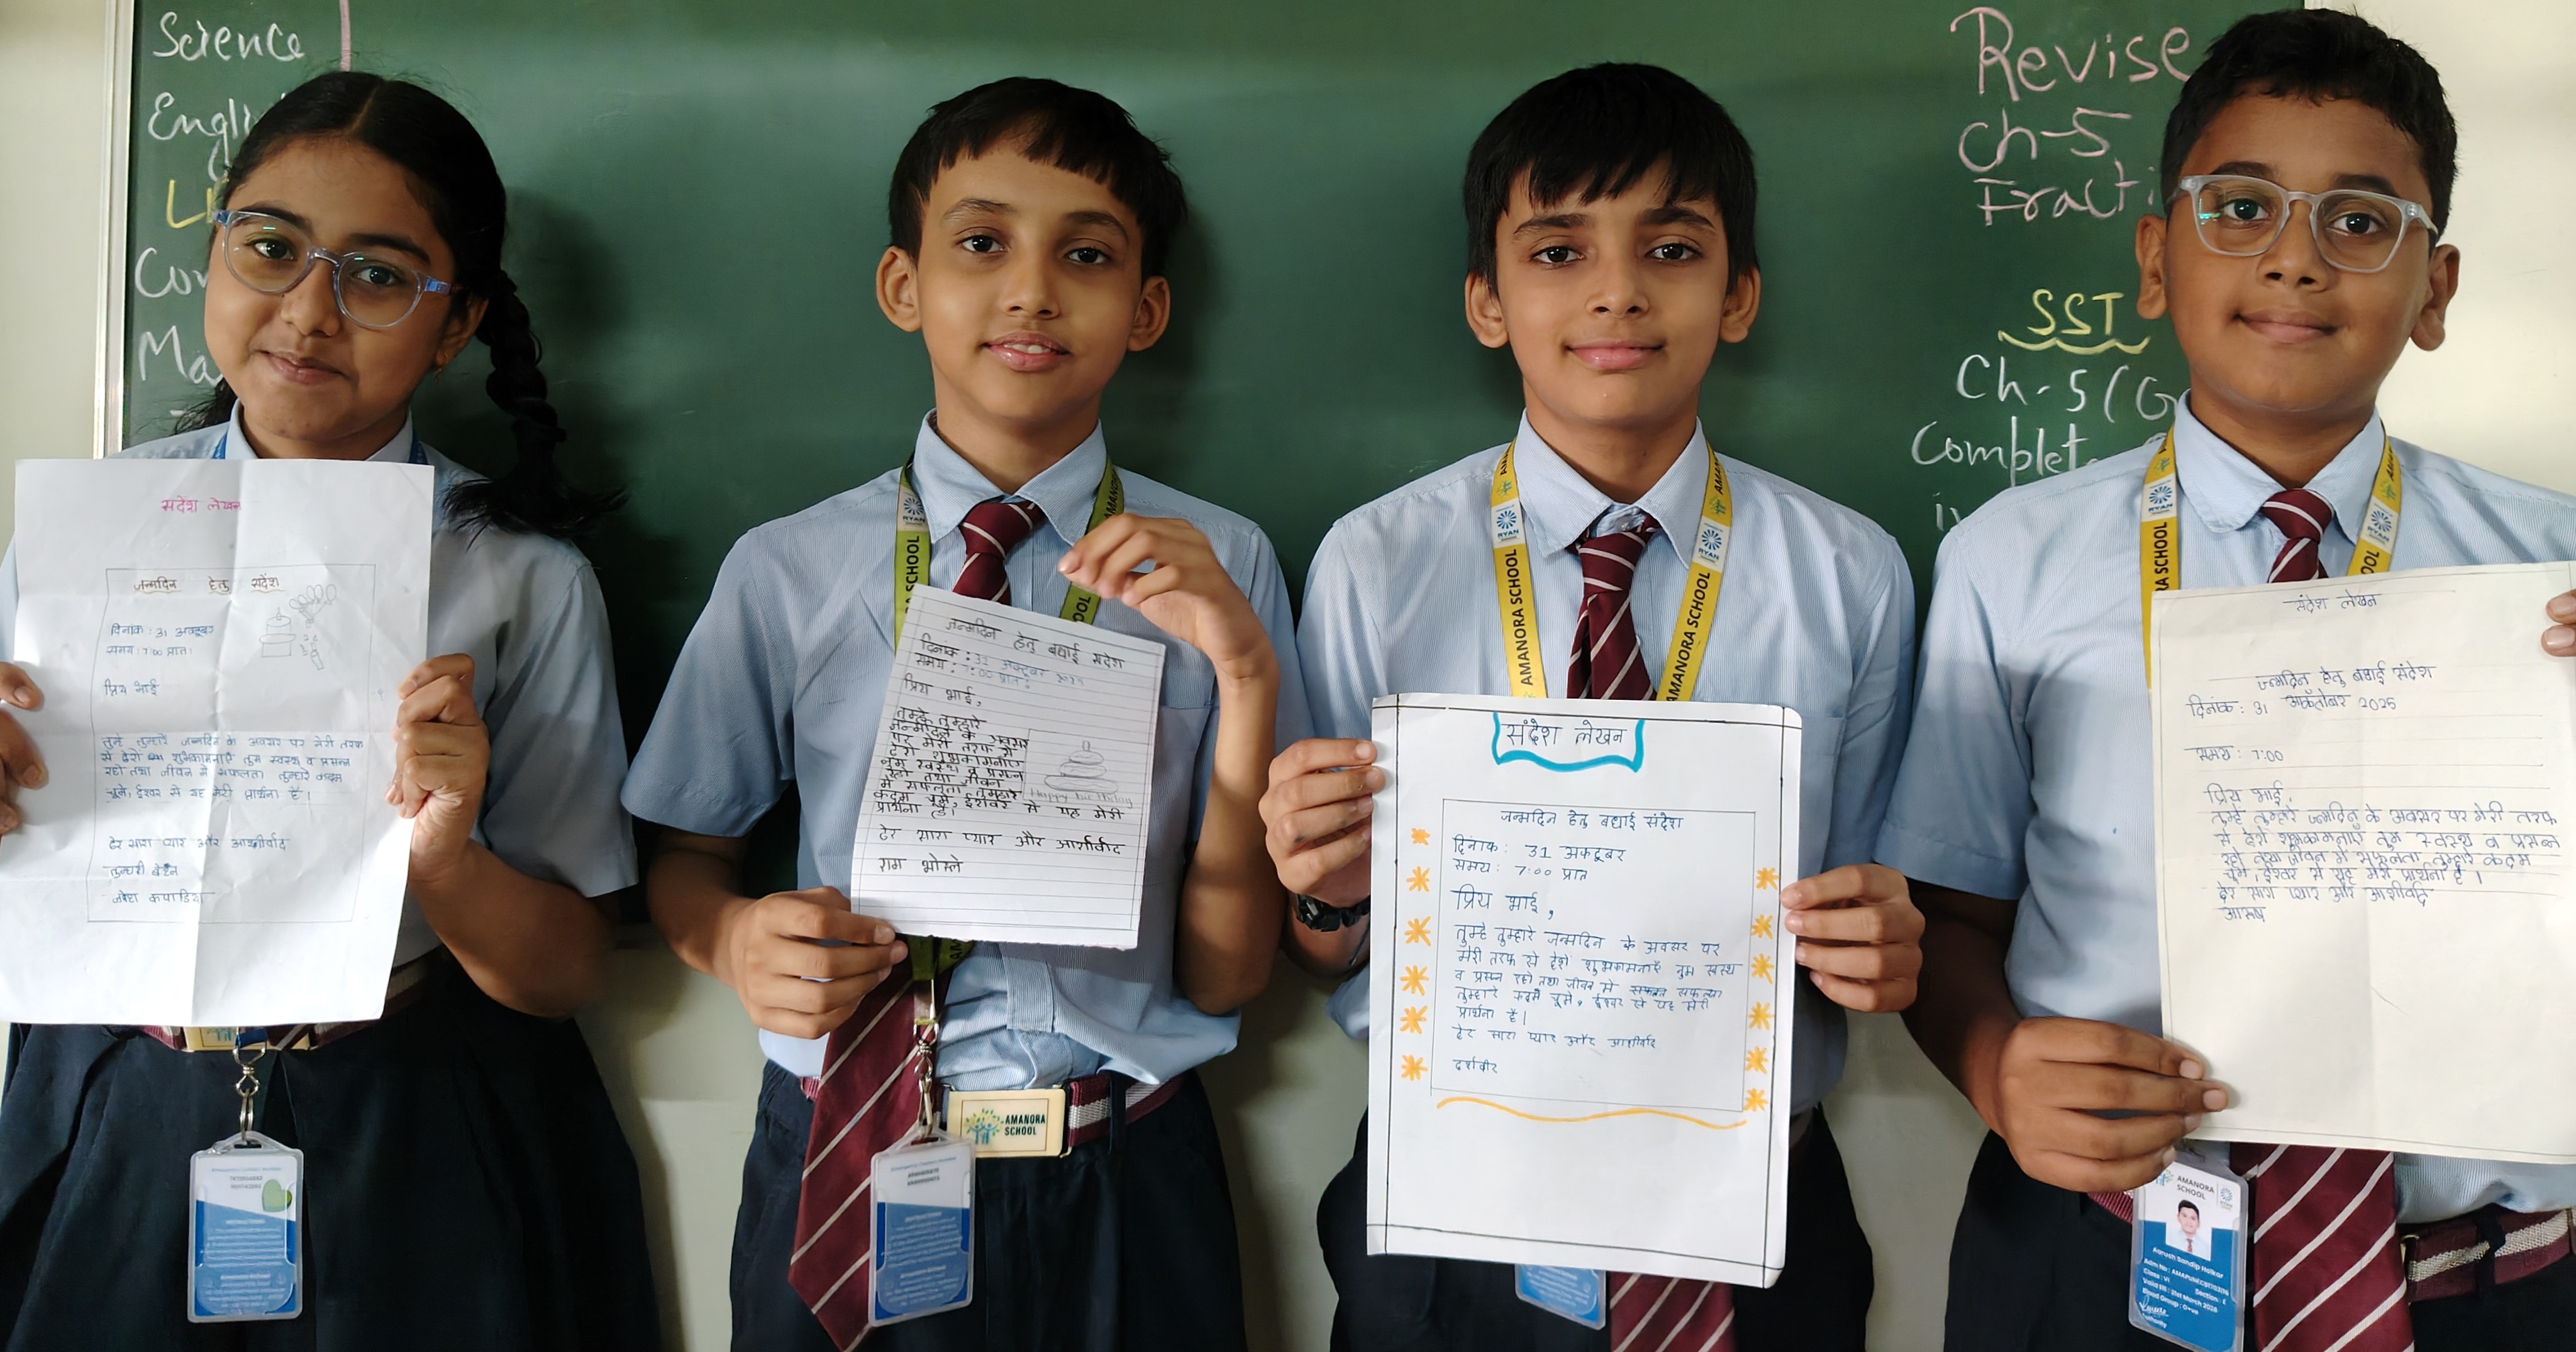 Science
Revise
Ch-5
SST
Ch-5 (G
संदेश लेखन
जन्मदिन हेतु संदेश
दिनांक : 31 अक्टूबर
समय : 7:00 प्रातः
प्रिय भाई
तुम्हे तुम्हारे जन्मदिन के अवसर पर मेरी तरफ
से ढेरो शुभकामनाएँ तुम स्वस्थ व प्रसन्न
रहो तथा जीवन मे सफलता तुम्हारे कदम
चूमे, ईश्वर से यह मेरी प्रार्थना है।
ढेर सारा प्यार और आशीर्वाद
तुम्हारी बहन
कपाडिया
जन्मदिन हेतु बधाई संदेश
दिनांक : 31 अक्टूबर 2025
समय : 7:00 प्रातः
प्रिय भाई,
तुम्हे तुम्हारे
जन्मदिन के अवसर
पर मेरी तरफ से
ढेरो शुभकामनाए
तुम स्वस्थ व प्रसन्न
रहो तथा जीवन
मे सफलता तुम्हारे
कदम चूमे, ईश्वर से यह मेरी
प्रार्थना है।
Happy birthday
ढेर सारा प्यार और आशीर्वाद
राम भोसले
संदेश लेखन
जन्मदिन हेतु बधाई संदेश
दिनांक : 31 अक्टूबर
समय : 7:00 प्रात
प्रिय भाई,
तुम्हे तुम्हारे जन्मदिन के अवसर पर
मेरी तरफ से ढेरो शुभकामनाएँ तुम स्वस्थ
व प्रसन्न रहो तथा जीवन मे सफलता
तुम्हारे कदम चूमे, ईश्वर से यह मेरी
प्रार्थना है।
ढेर सारा प्यार और आशीर्वाद
दर्शवीर
संदेश लेखन
जन्मदिन हेतु बधाई संदेश
दिनांक : 31 अक्तोबर 2025
समय : 7:00
प्रिय भाई,
तुम्हे तुम्हारे जन्मदिन के अवसर पर मेरी तरफ
से ढेरो शुभकामनाएँ तुम स्वस्थ व प्रसन्न
रहो तथा जीवन मे सफलता तुम्हारे कदम
चूमे, ईश्वर से यह मेरी प्रार्थना है।
ढेर सारा प्यार और आशीर्वाद
आरुष
AMANORA SCHOOL
RYAN
AMANORA SCHOOL
RYAN
AMANORA SCHOOL
AMANORA
SCHOOL
AMANORA
SCHOOL
Aarush Sandip Holkar
Class : VI
Section : E
Valid till : 31st March 2026
Blood Group : O+ve